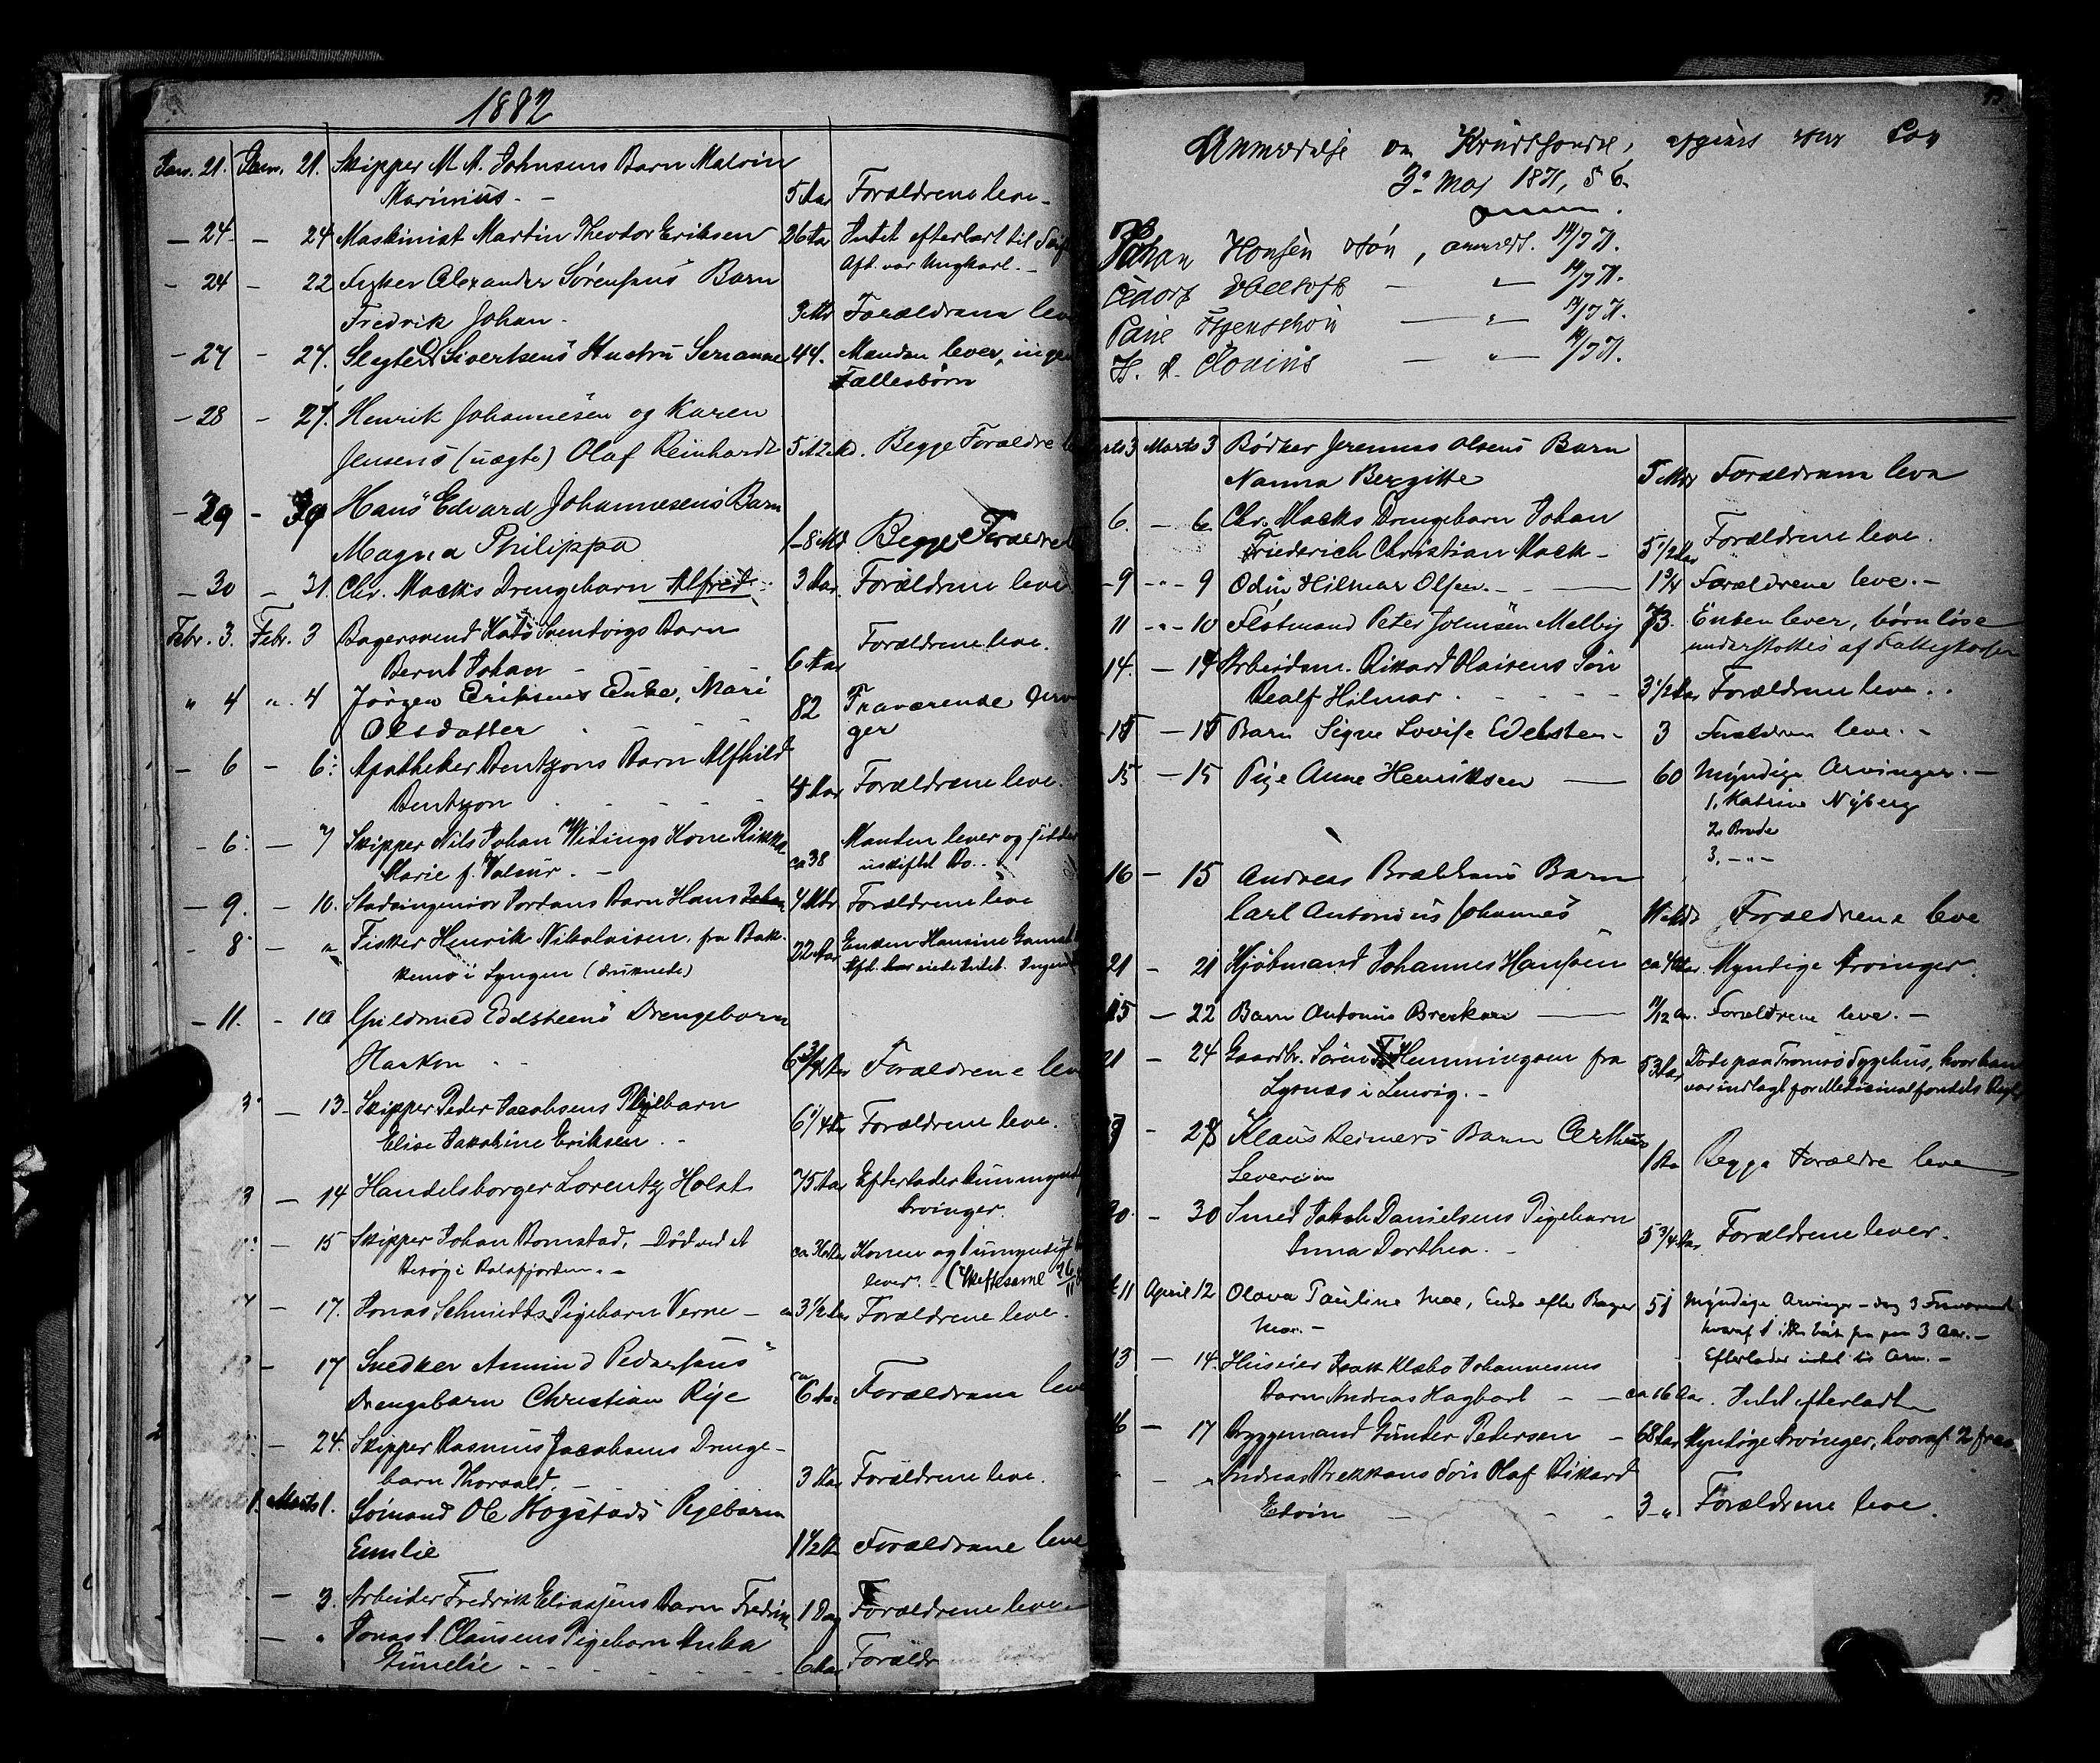 1882
Jan. 21. Jan. 21. Skipper M. A. Johnsens Barn Malvin
Marinius. - 5 Aar Forældrene leve -
- 24 - 24 Maskinist Martin Theodor Eriksen 26 Aar Intet efterladt til
Afd. var Ungkarl. -
- 24 - 22 Fisker Alexander Sørensens Barn
Fredrik Johan. 3 Forældrene leve
- 27 - 27. Sivertsens Hustru Serianne 44. Manden lever, ingen
Fællesbørn
- 28 - 27. Henrik Johannesen og Karen
Jensens (uægte) Olaf Reinhardt 5 Begge Forældre
- 29 - 29 Hans Edvard Johannesens Barn
Magna Philippa 1-8 Md Begge Forældre
- 30 - 31. Chr. Macks Drengebarn Alfred. 3 Aar. Forældrene leve
Febr. 3. Febr. 3 Bagersvend Svendvigs Barn
Bernt Johan - 6 Aar Forældrene leve.
" 4 " 4 Jørgen Eriksens Enke, Mari
Olsdatter 82 Fraværende Arvin
ger
- 6 - 6. Apotheker Bentzons Barn Alfhild
Bentzon 4 Aar Forældrene leve.
- 6. - 7 Skipper Nils Johan Widings Kone Rikke
Marie f. Valeur. - ca 38 Manden lever og sidder
i uskiftet Bo.
- 9. - 10. Stadsingeniør Jordans Barn Hans Johan 4 Mdr Forældrene leve
- 8 - " Fisker Henrik Nikolaisen, fra Bak-
kemo i Lyngen (druknede) 22 Aar Enken Hansine
Afd. har eiede Intet.
- 11. - 10 Guldsmed Edelsteens Drengebarn
Haakon 6 3/4 Aar Forældrene leve
13 - 13. Skipper Peder Jacobsens Pleiebarn
Elise Jakobine Eriksen. - 6 1/4 Aar Forældrene leve.
13 - 14 Handelsborger Lorentz Holst 75 Aar Efterlader kun myndige
Arvinger.
- 15 Skipper Johan Bomstad, Død ved et
Besøg i Balsfjorden. - Konen og 1 umyndigt
lever. -
17 - 17. Jonas Schmidts Pigebarn Verne - ca 3 1/2 Aar Forældrene leve.
- 17 Snedker Amund Pedersens
Drengebarn Christian Rye ca 6 Aar Forældrene leve
- 24. Skipper Rasmus Jacobsens Drenge-
barn Thorvald. - 3 Aar Forældrene leve.
1. Marts 1. Sømand Ole Høgstads Pigebarn
Emilie 1 1/2 Aar Forældrene leve
- 3. Arbeider Fredrik Eliassens Barn Fredrik 1 Dag Forældrene leve
- " Jonas Clausens Pigebarn Anka
6 Aar Forældrene leve
Anmeldelse om
3 Maj 1871, § 6.
Johan Hansen , anmeldt. 14/7 71.
- " - 14/7 71.
- " - 14/7 71.
H. A. - " - 14/7 71.
Marts 3 Marts 3 Bødker Jeremias Olsens Barn
Nanna Bergitte 5 Mdr Forældrene leve
6. - 6. Chr. Macks Drengebarn Johan
Friederich Christian Mack - 5 1/2 Aar Forældrene leve.
- 9 - " - 9 Odin Hilmar Olsen. - 1 3/4 Forældrene leve. -
11 - " - 10 Flotmand Peter Johnsen Melby 73. Enken lever, børnløse
understøttes af Fattigkassen
14. - 14 Arbeidsm. Rikard Olaisens Søn
Realf Hilmar 3 1/2 Aar Forældrene leve.
15 - 15 Barn Signe Lovise Edelsten - 3 Forældrene leve. -
15 - 15 Pige Anne Henriksen 60 Myndige Arvinger. -
1, Katrine Nyberg
2, Brude
3. - " -
16 - 15 Andreas Brækkans Barn
Carl Antonius Johannes Forældrene leve
21 - 21 Kjøbmand Johannes Hansen Myndige Arvinger.
15 - 22 Barn Antonius Brekkan 11/12 Aar. Forældrene leve. -
21 - 24 Gaardbr. Søren Henningsen fra
Lysnes i Lenvig. - 53 Aar Døde paa Tromsø Sygehus, hvor han
var indlagt for Medicinalfondets Regn
- 28 Klaus Reimers Barn Arthur
Severin 1 Aar Begge Forældre leve
30. - 30 Smed Jakob Danielsens Pigebarn
Anna Dorthea. - 5 3/4 Aar Forældrene lever.
11 April 12 Olava Pauline Moe, Enke efter Bager
Moe. - 51 Myndige Arvinger - dog 3 Fraværende
hvoraf 1 ikke hørt fra paa 3 Aar. -
Efterlader intet til Arv. -
13 - 14. Huseier Isak Klæbo Johannesens
Barn Andreas Hagbart - ca 16 Aar. Intet efterladt
16 - 17 Bryggemand Gunder Pedersen - 68 Aar Myndige Arvinger, hvoraf 2 frav.
" - " Andreas Brekkans Søn Olaf Rikard
Edvin 3 - " Forældrene leve.